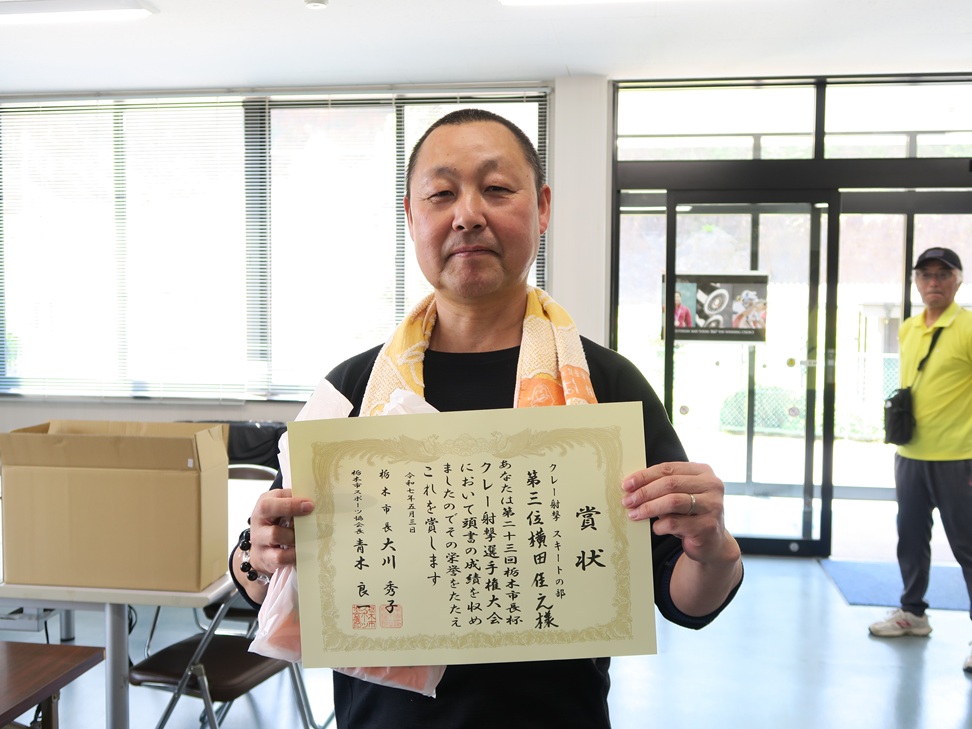 賞状
クレー射撃 スキートの部
第三位横田佳之様
あなたは第二十三回栃木市長杯
クレー射撃選手権大会
において頭書の成績を収め
ましたのでその栄誉をたたえ
これを賞します
令和七年五月三日
栃木市長大川秀子
栃木市スポーツ協会長青木良一